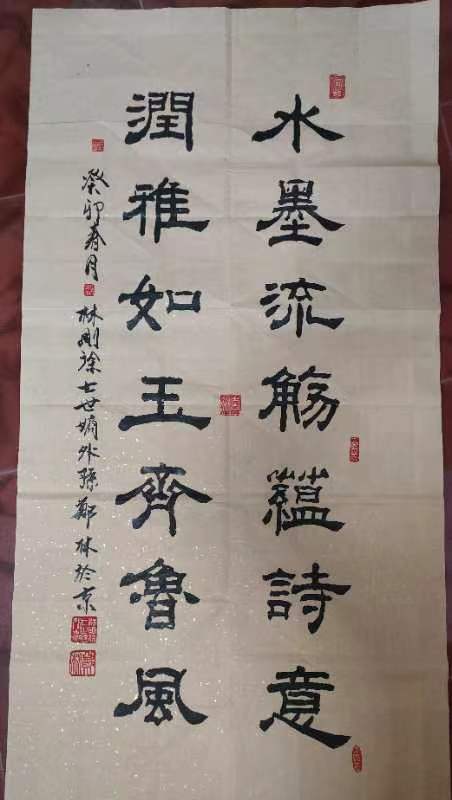 水墨流觞蕴詩意
潤雅如玉齊魯風
癸卯春月
林則徐七世嫡外孫鄭林於京